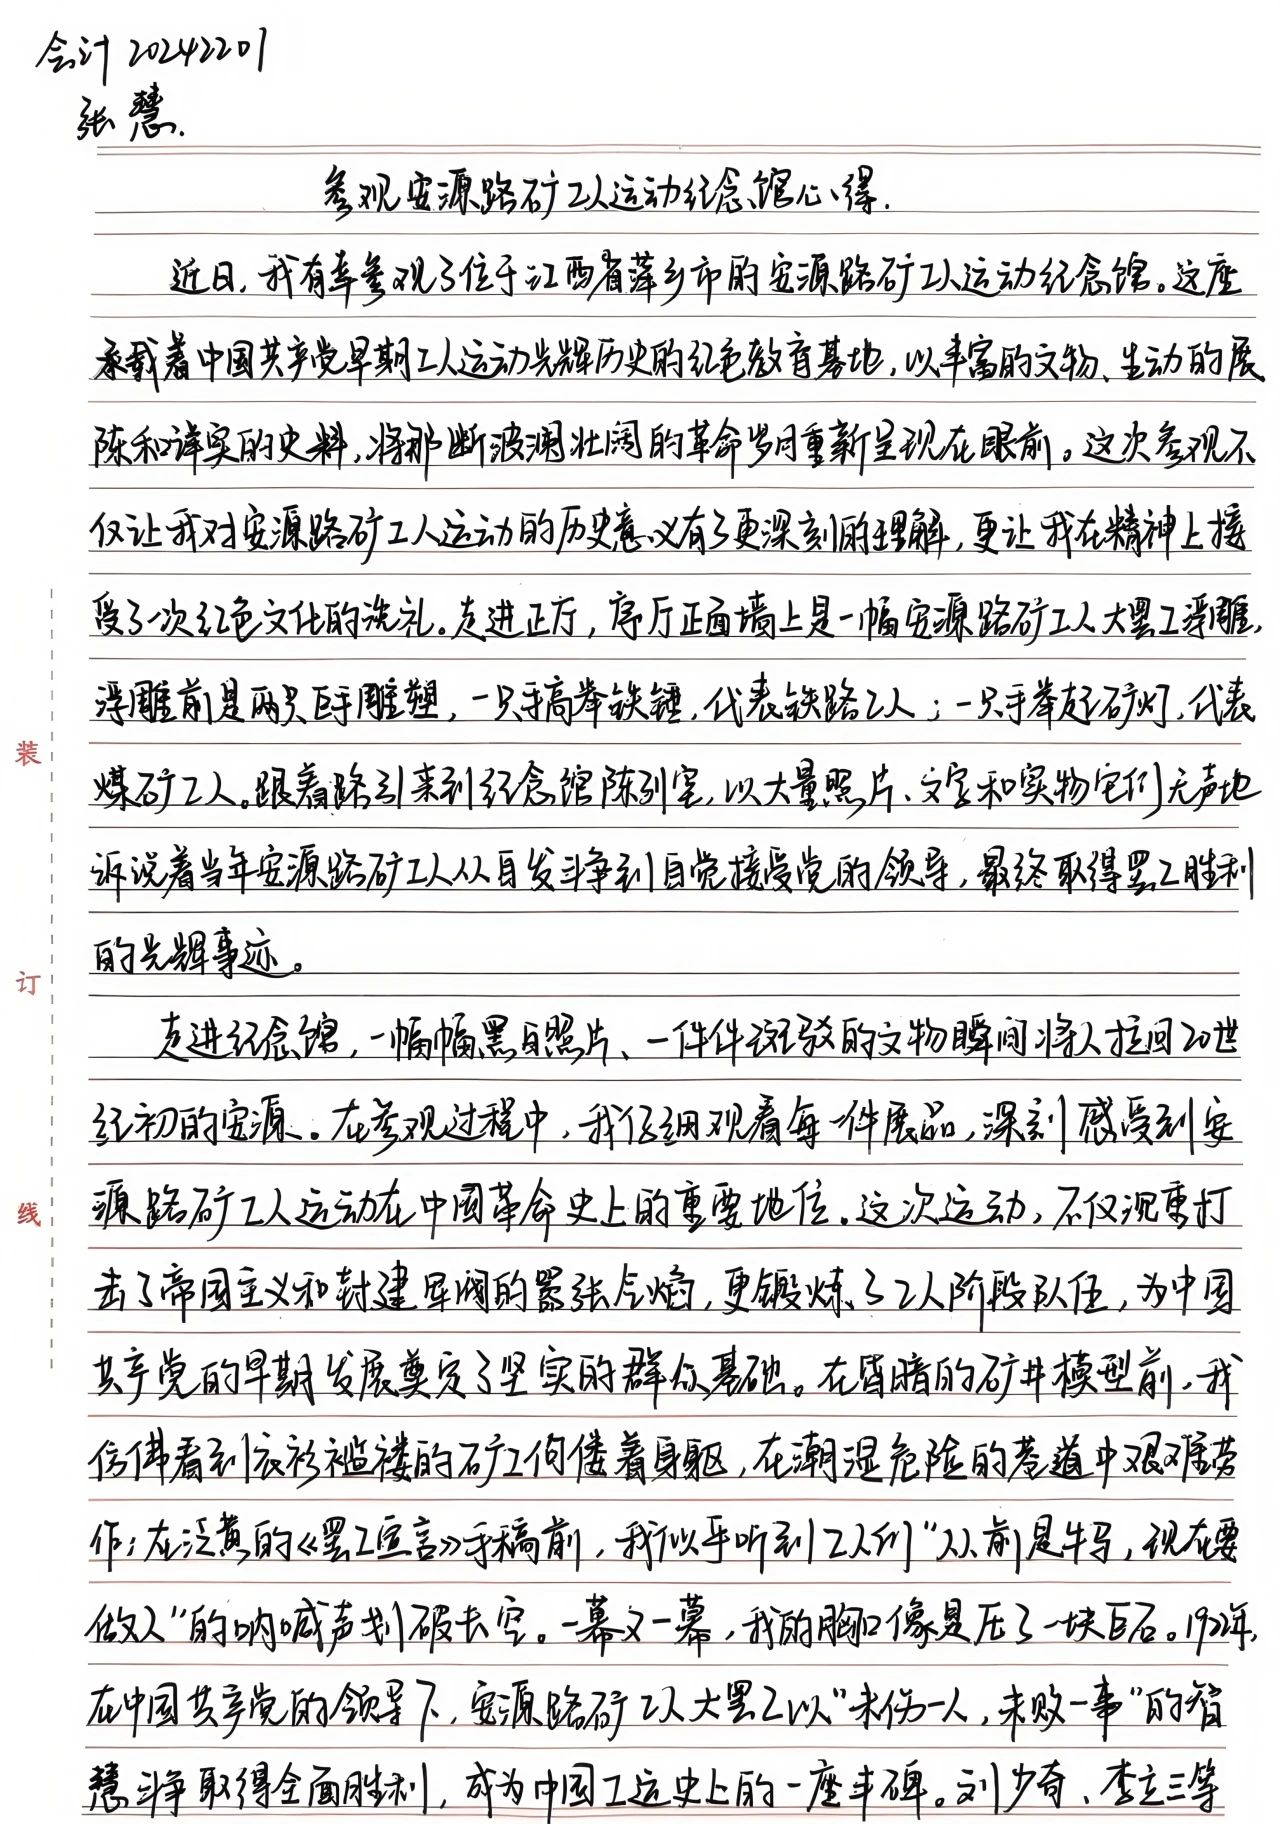 会计20242201
张慧.
参观安源路矿工人运动纪念馆心得.
近日,我有幸参观了位于江西省萍乡市的安源路矿工人运动纪念馆。这座
承载着中国共产党早期工人运动光辉历史的红色教育基地,以丰富的文物、生动的展
陈和详实的史料,将那断波澜壮阔的革命岁月重新呈现在眼前。这次参观不
仅让我对安源路矿工人运动的历史意义有了更深刻的理解,更让我在精神上接
受了一次红色文化的洗礼。走进正厅,序厅正面墙上是一幅安源路矿工人大罢工浮雕,
浮雕前是两只巨手雕塑,一只手高举铁锤,代表铁路工人;一只手举起矿灯,代表
煤矿工人。跟着路引来到纪念馆陈列室,以大量照片、文字和实物它们无声地
诉说着当年安源路矿工人从自发斗争到自觉接受党的领导,最终取得罢工胜利
的光辉事迹。
走进纪念馆,一幅幅黑白照片、一件件斑驳的文物瞬间将人拉回20世
纪初的安源。在参观过程中,我仔细观看每一件展品,深刻感受到安
源路矿工人运动在中国革命史上的重要地位。这次运动,不仅沉重打
击了帝国主义和封建军阀的嚣张气焰,更锻炼了工人阶段队伍,为中国
共产党的早期发展奠定了坚实的群众基础。在昏暗的矿井模型前,我
仿佛看到衣衫褴褛的矿工佝偻着身躯,在潮湿危险的巷道中艰难劳
作;在泛黄的《罢工宣言》手稿前,我似乎听到工人们“从前是牛马,现在要
做人”的呐喊声划破长空。一幕又一幕,我的胸口像是压了一块巨石。1922年,
在中国共产党的领导下,安源路矿工人大罢工以“未伤一人,未败一事”的智
慧斗争取得全面胜利,成为中国工运史上的一座丰碑。刘少奇、李立三等
装
订
线